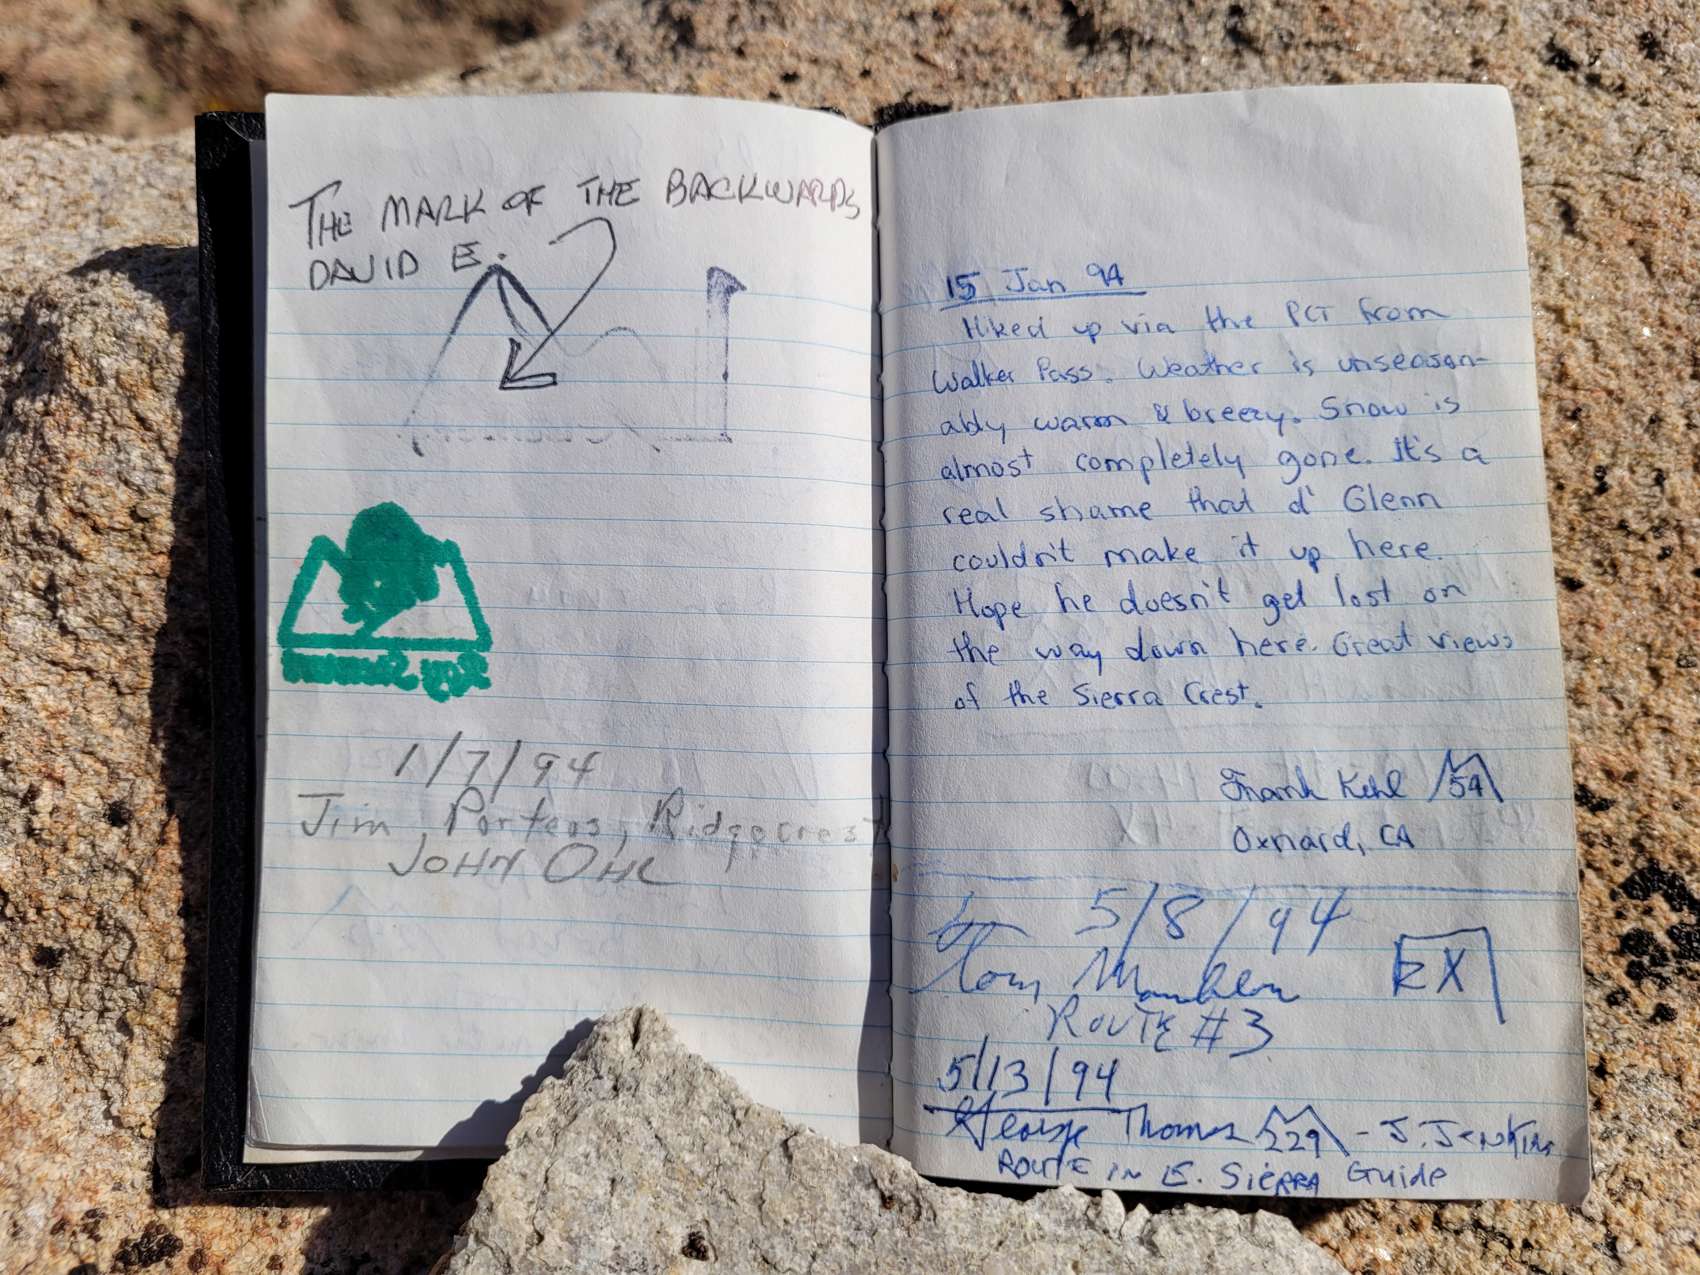 THE MARK OF THE BACKWARDS
DAVID E.
1/7/94
Jim Porteos, Ridgecrest
JOHN OHL
15 Jan 94
Hiked up via the PCT from
Walker Pass. Weather is unseason-
ably warm & breezy. Snow is
almost completely gone. It's a
real shame that d' Glenn
couldn't make it up here.
Hope he doesn't get lost on
the way down here. Great views
of the Sierra Crest.
Frank Kehl 54
Oxnard, CA
5/8/94
Tom
EX
ROUTE #3
5/13/94
George Thomas 229 - J. JENKINS
ROUTE IN E. SIERRA Guide